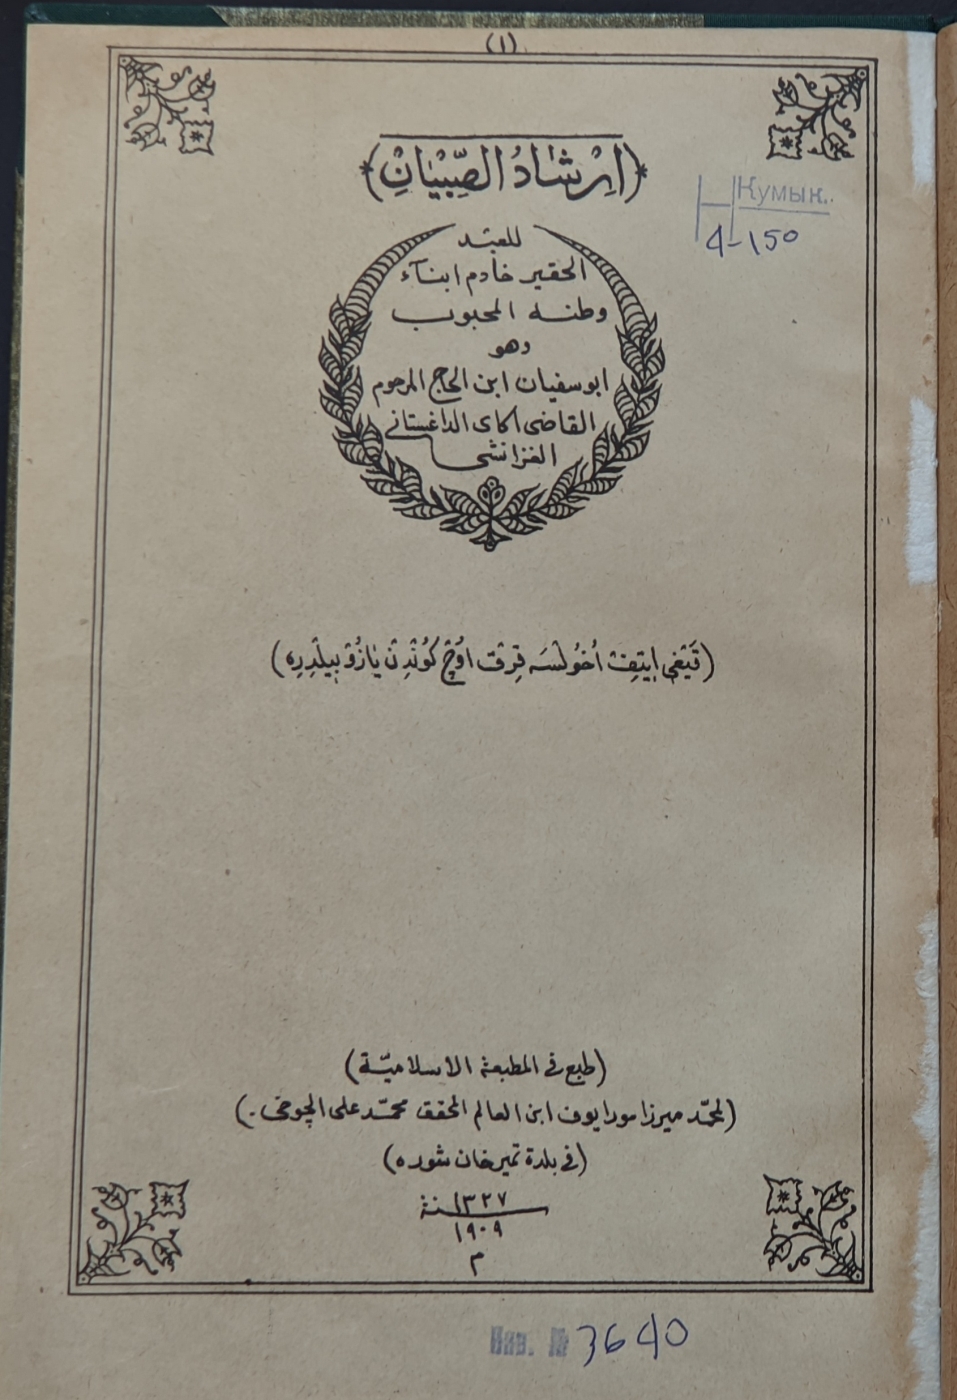 (١)
﴿اِرْشَادُ الصِّبْيَانِ﴾
Кумык.
Н
4-150
للعبد
الحقير خادم ابنآء
وطنه المحبوب
وهو
ابوسفيان ابن الحاج المرحوم
القاضى اكاى الداغستانى
الغزانشى
(قَيْغِى اِيتِفْ اُخُولْسَه قِرْق اوُچْ كُونْدِنْ يَازُوْ بِيلْدِرِه)
(طبع فى المطبعة الاسلاميّة)
(لمحمّد ميرزا مورايوف ابن العالم المحقق محمّد على الچوخى.)
(فى بلدة تميرخان شوره)
١٣٢٧ سنة
١٩٠٩
م
Инв. № 3640